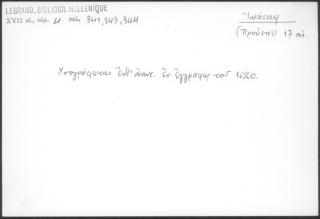 LEGRAND, BIBLIOGR. HELLENIQUE
XVII αἰ. τόμ. 4 σελ. 341, 343, 344
Ἰωάσαφ
(Προύσης) 17 αἰ.
Ὑπογράφεται ἐνθ' ἀνωτ. ἐν ἐγγράφῳ τοῦ 1620.